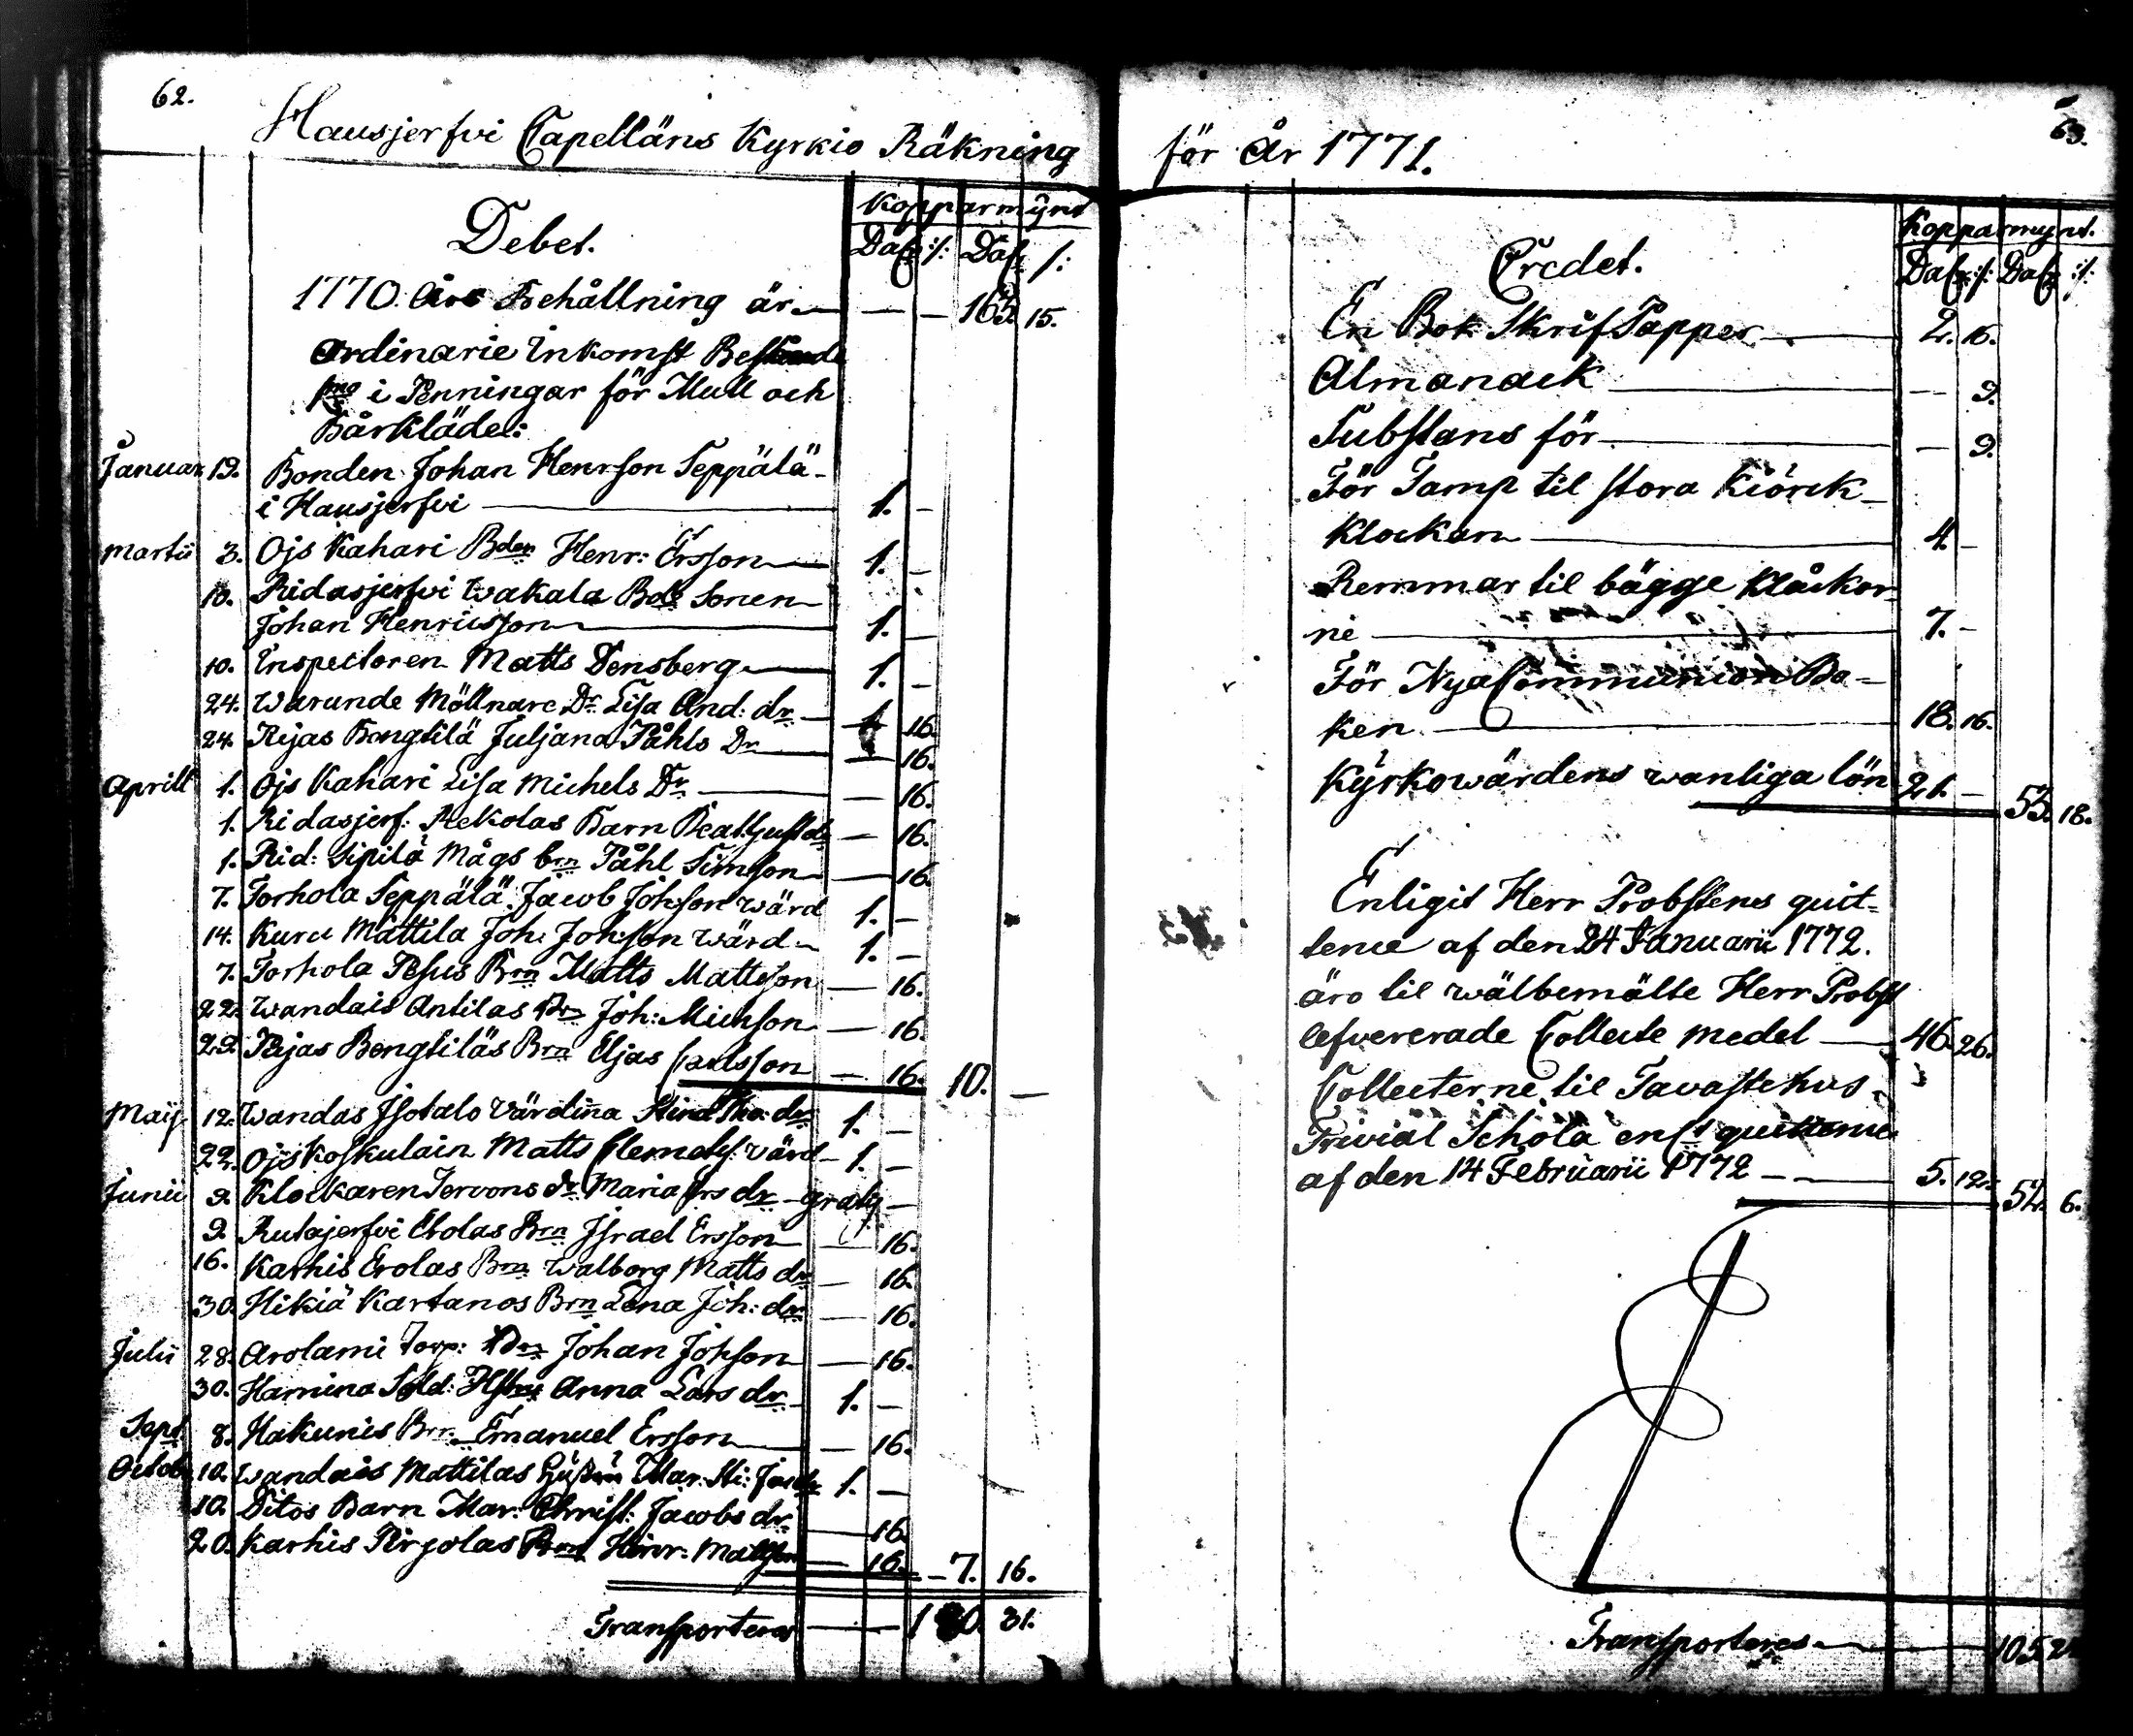 62.
Hausjerfvi Capelläns Kyrkio Räkning
Debet.
Kopparmynt
Dalr :/: Dalr /:
1770. Års Behållning är — — 163. 15.
Ordinarie Inkomst Bestående
i Penningar för Mull och
Bårkläde:
Januar. 19. Bonden Johan Henrsson Seppälä
i Hausjerfvi — 1. —
Martii 3. Ojs Kahari Bden Henr: Ersson — 1. —
10. Ridasjerfvi Wakala Bde Sonen
Johan Henricsson — 1. —
10. Inspectoren Matts Densberg — 1. —
24. Warunde Möllnare Dr. Lisa And: dr — 16.
24. Rijas Bengtilä Juljana Påhls Dr — 16.
Aprill 1. Ojs Kahari Lisa Michels Dr. — 16.
1. Ridasjerf: Rekolas Barn Beat: Gust dr — 16.
1. Rid: Sipilä Mågs brn Påhl Simsson — 16.
7. Torhola Seppälä: Jacob Johsson wärd 1. —
14. Kuru Mattila Joh: Johsson wärd — 1. —
7. Torhola Pesus Brn Matts Mattsson — 16.
22. Wandais Antilas Brn Joh: Michsson — 16.
29. Rijas Bengtiläs Brn Eljas Carlsson — 16. 10. —
Maij. 12. Wandas Isotalo Värdina Stina Tho: dr 1. —
22. Ojs Koskulain Matts Clemetss: värd — 1. —
Junii 9. Klockaren Tervons dr Maria Ers dr — gratis —
9. Rutajerfvi Erolas Brn Israel Ersson — 16.
16. Karhis Erolas Brn Walborg Matts dr — 16.
30. Hikiä Kartanos Brn Lena Joh: dr — 16.
Julii 28. Arolami Torp: Brn Johan Johsson — 16.
30. Hamina Sold: Hstru Anna Lars dr — 1. —
Sept. 8. Hakunis Brn Emanuel Ersson — 16.
Octob. 10. Wandais Mattilas Mar: Sti: Jac dr 1. —
10. Ditos Barn Mar: Christ: Jacobs dr — 16.
20. Karhis Pirjolas Brn Henr: Mattsson — 16. — 7. 16.
Transporteras — 180. 31.
63.
för År 1771.
Credet.
Kopparmynt.
Dalr :/: Dalr :/:
En Bok Skrif Papper — 2. 16.
Almanack — 9.
Substans för — 9.
För Tamp til stora Kiörck-
klockan — 4. —
Remmar til bägge Klåckor-
ne — 7. —
För Nya Communion Bo-
ken — 18. 16.
Kyrkowärdens wanliga lön 21. — 53. 18.
Enligit Herr Probstens quit-
tence af den 24 Januarii 1772.
äro til wälbemälte Herr Probst
lefvererade Collecte medel — 46. 26.
Collecterne til Tavastehus
Trivial Schola enl. quittence
af den 14 Februarii 1772 — — 5. 12. 52. 6.
Transporteres — 105. 24